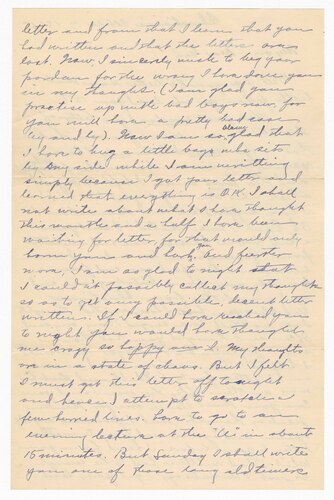 letter and from that I learn that you
had written and that the letters are
lost. Now, I sincerely wish to beg your
pardon for the wrong I have done you
in my thoughts. (I am glad you
practise up with bad boys now, for
you will have a pretty bad case
by and by). Now I am so glad that
I have to hug a little boy who sits
by my side while I am writting
simply because I got your letter and
learned that everything is O.K. I shall
not write about what I have thought
this month and a half I have been
waiting for letter, for that would only
harm you and hurt. And further
more, I am so glad to night that
I could'nt possibly collect my thoughts
so as to get any possible, decent letter
written. If I could have reached you
to night you would have thought
me crazy so happy am I. My thoughts
are in a state of chaos. But I felt
I must get this letter off to night
and hence I attempt to scrabble a
few hurried lines. Have to go to an
evening lecture at the "U" in about
15 minutes. But Sunday I shall write
you one of those long old timers